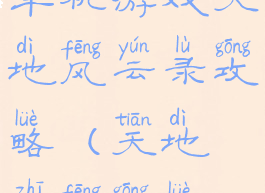 单机游戏天
dì fēng yún lù gōng
地风云录攻
lüè tiān dì
略（天地
zhī fēng gōng lüè